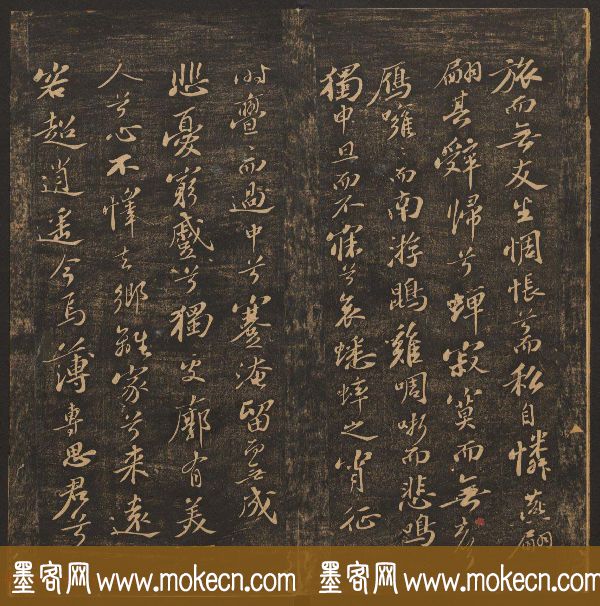 旅而无友生惆悵兮而私自憐燕翩
翩其辭歸兮蟬寂寞而無聲
鴈嗈〻而南游鵾雞啁哳而悲鳴
獨申旦而不寐兮哀蟋蟀之宵征
時亹〻而過中兮蹇淹留无成
悲憂窮蹙兮獨處廓有美
人兮心不懌去鄉離家兮来遠
客超逍遥今焉薄專思君兮
墨客网 www.mokecn.com 墨客网 www.mokecn.com